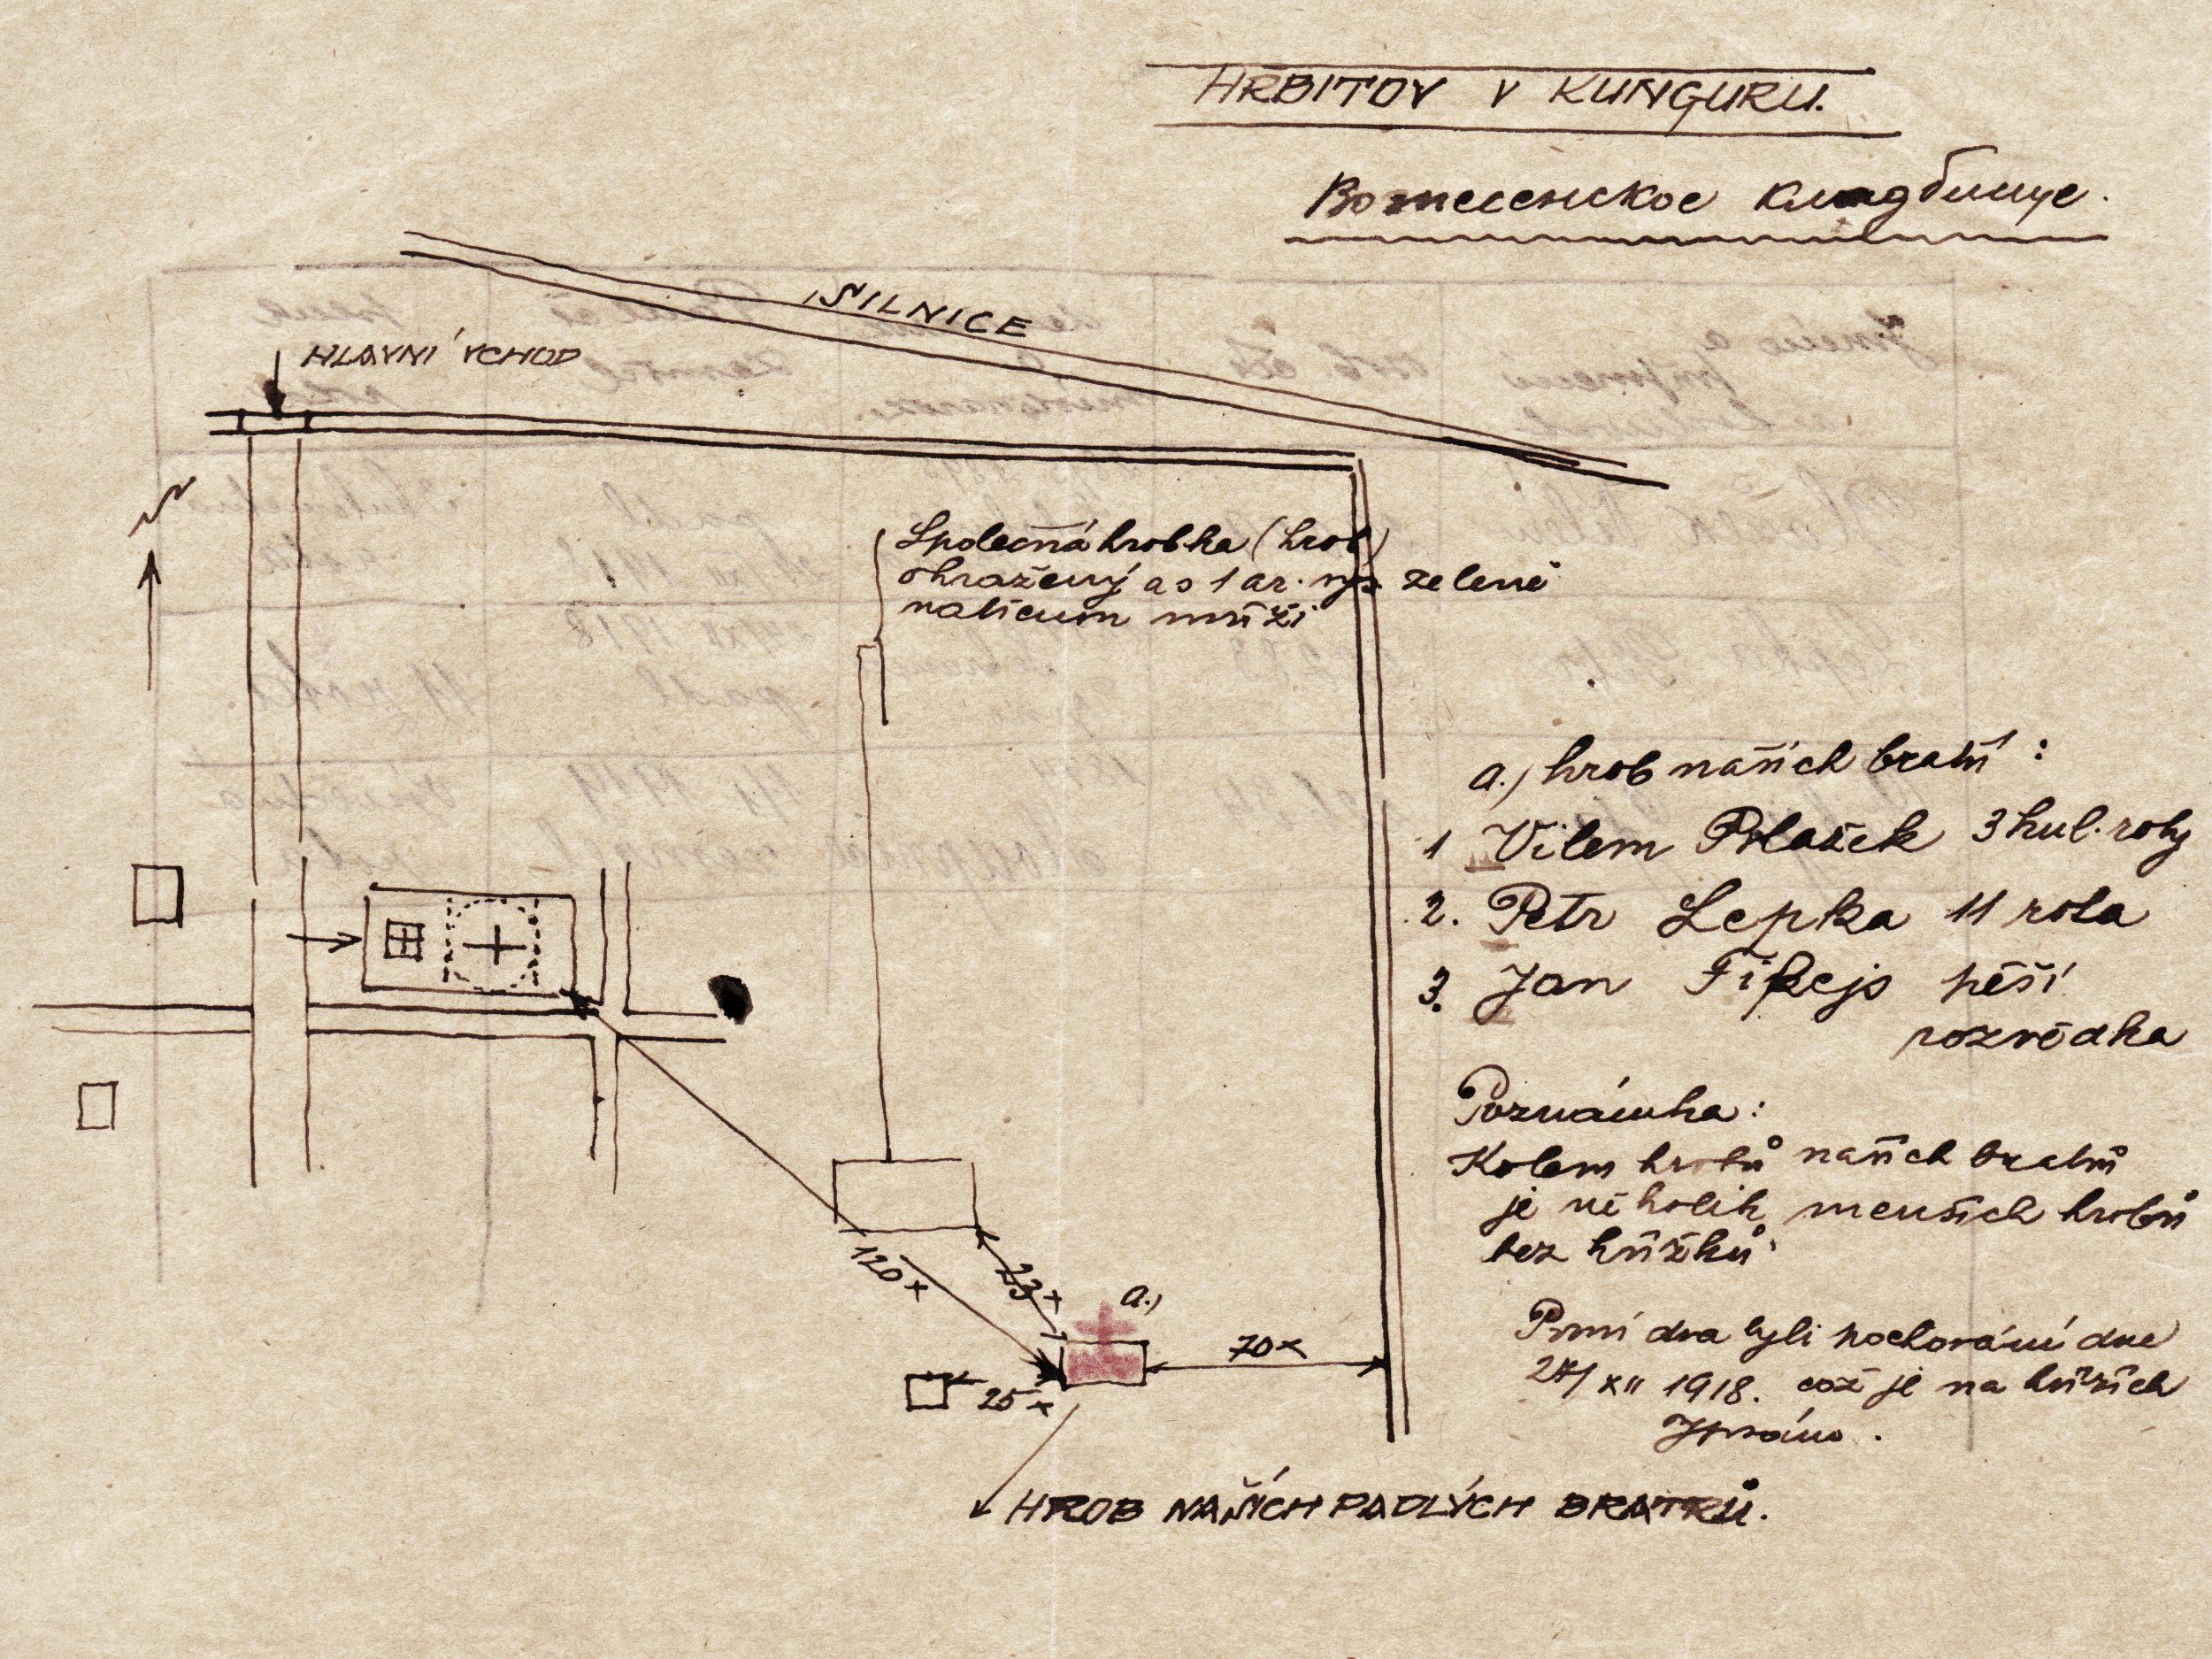 HŘBITOV V KUNGURU.
Вознесенское кладбище.
SILNICE
HLAVNÍ VCHOD
N
Společná hrobka (hrob)
ohražený as 1 ar. zeleně
natřenou mříží
a.) hrob našich bratří:
1 Vilem Polašek 3 kul. roty
2. Petr Lepka 11 rota
3. Jan Fikejs pěší
rozvědka
Poznámka:
Kolem hrobů našich bratrů
je několik menších hrobů
bez křížků
První dva byli pochováni dne
1918. což je na křížích
120 x
23 x
a.)
70 x
25 x
HROB NAŠÍCH PADLÝCH BRATRŮ.